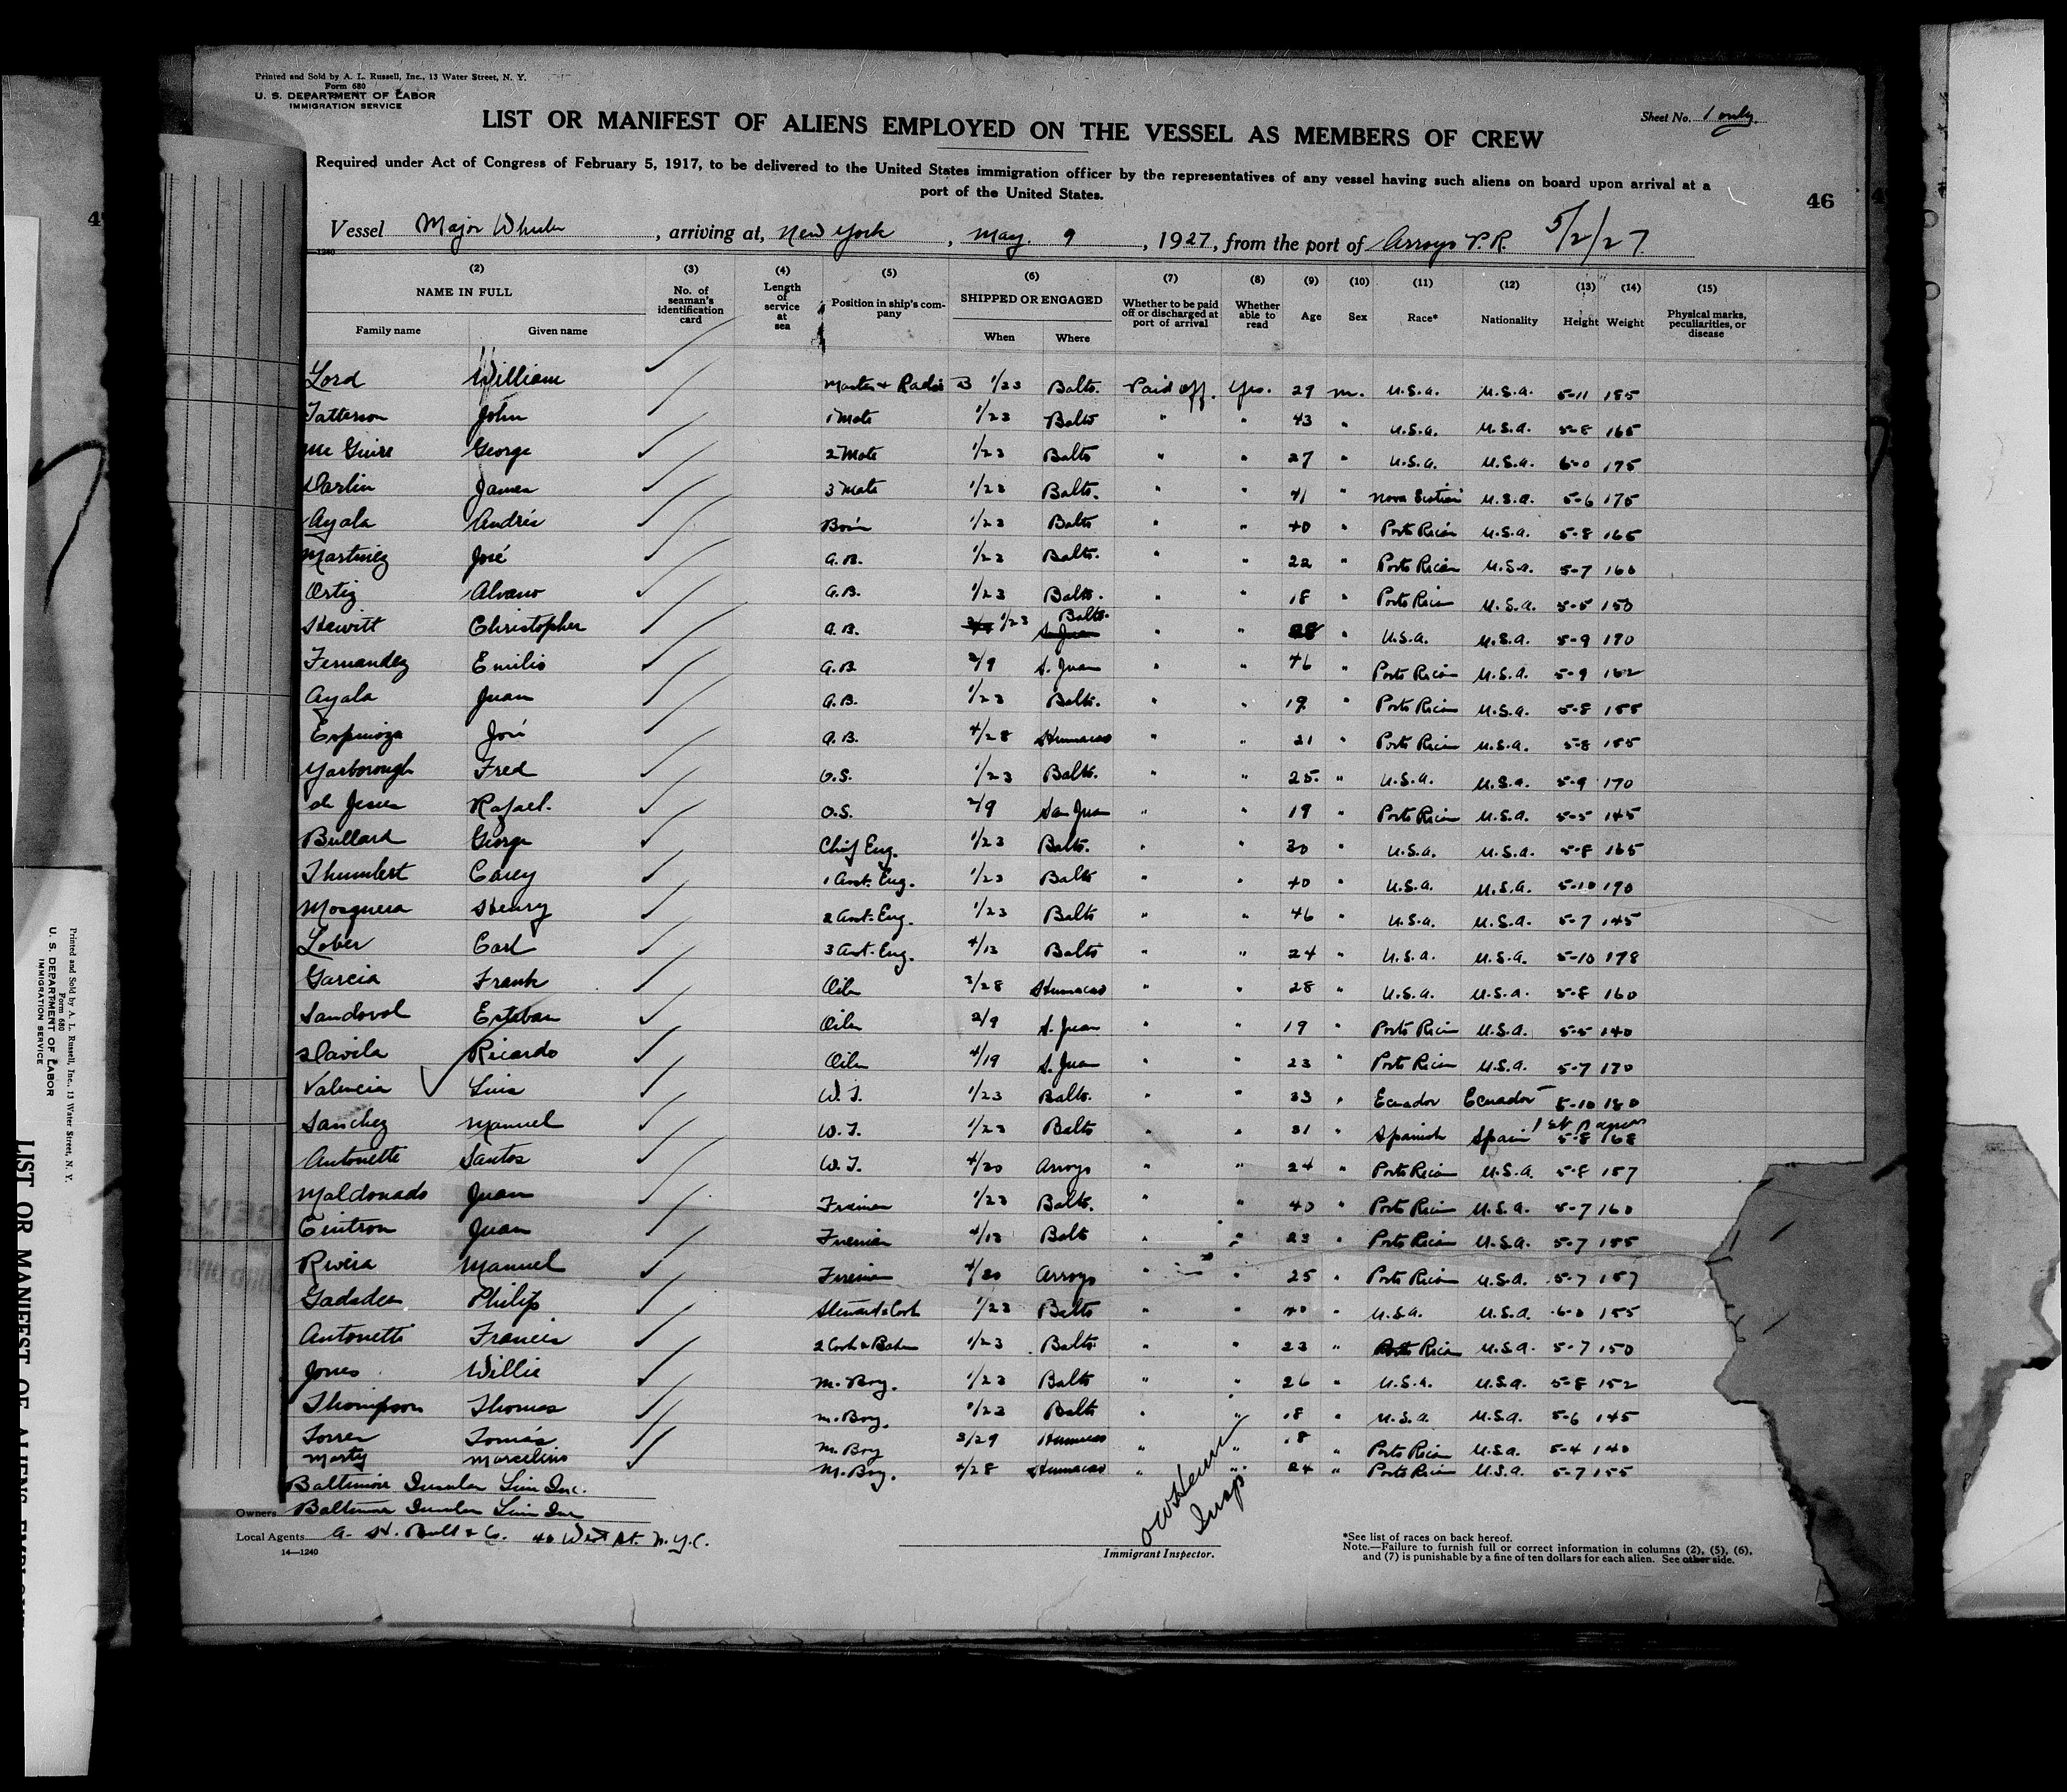 Printed and Sold by A. L. Russell, Inc., 13 Water Street, N. Y.
Form 680
U. S. DEPARTMENT OF LABOR
IMMIGRATION SERVICE
Sheet No. 1 only.
LIST OR MANIFEST OF ALIENS EMPLOYED ON THE VESSEL AS MEMBERS OF CREW
Required under Act of Congress of February 5, 1917, to be delivered to the United States immigration officer by the representatives of any vessel having such aliens on board upon arrival at a
port of the United States.
46
Vessel Major Wheeler, arriving at, New York, May 9, 1927, from the port of Arroyo P.R. 5/2/27
(2) (3) (4) (5) (6) (7) (8) (9) (10) (11) (12) (13) (14) (15)
NAME IN FULL No. of seaman's identification card Length of service at sea Position in ship's company SHIPPED OR ENGAGED Whether to be paid off or discharged at port of arrival Whether able to read Age Sex Race* Nationality Height Weight Physical marks, peculiarities, or disease
Family name Given name When Where
Lord William Master & Radio 1/23 Balto. Paid off. Yes. 29 m. U.S.A. U.S.A. 5-11 185
Patterson John 1 Mate 1/23 Balto " " 43 " U.S.A. U.S.A. 5-8 165
McGuire George 2 Mate 1/23 Balto " " 27 " U.S.A. U.S.A. 6-0 175
Darlin James 3 Mate 1/23 Balto. " " 41 " Nova Scotia U.S.A. 5-6 175
Ayala Andrés Bos'n 1/23 Balto " " 40 " Porto Rican U.S.A. 5-8 165
Martinez José A.B. 1/23 Balto. " " 22 " Porto Rican U.S.A. 5-7 160
Ortiz Alvaro A.B. 1/23 Balto. " " 18 " Porto Rican U.S.A. 5-5 150
Hewitt Christopher A.B. 1/23 Balto. S. Juan " " 28 " U.S.A. U.S.A. 5-9 190
Fernandez Emilio A.B. 2/9 S. Juan " " 46 " Porto Rican U.S.A. 5-9 162
Ayala Juan A.B. 1/23 Balto. " " 19 " Porto Rican U.S.A. 5-8 155
Espinoza José A.B. 4/28 Humacao " " 21 " Porto Rican U.S.A. 5-8 155
Yarborough Fred O.S. 1/23 Balto. " " 25 " U.S.A. U.S.A. 5-9 170
de Jesus Rafael. O.S. 2/9 San Juan " " 19 " Porto Rican U.S.A. 5-5 145
Bullard George Chief Eng. 1/23 Balto. " " 30 " U.S.A. U.S.A. 5-8 165
Thumlert Carey 1 Asst. Eng. 1/23 Balto " " 40 " U.S.A. U.S.A. 5-10 190
Mosquera Henry 2 Asst. Eng. 1/23 Balto " " 46 " U.S.A. U.S.A. 5-7 145
Lober Carl 3 Asst. Eng. 4/13 Balto " " 24 " U.S.A. U.S.A. 5-10 178
Garcia Frank Oiler 3/28 Humacao " " 28 " U.S.A. U.S.A. 5-8 160
Sandoval Esteban Oiler 2/9 S. Juan " " 19 " Porto Rican U.S.A. 5-5 140
Davila Ricardo Oiler 4/19 S. Juan " " 23 " Porto Rican U.S.A. 5-7 170
Valencia Luis W.T. 1/23 Balto. " " 33 " Ecuador Ecuador 5-10 180
Sanchez Manuel W.T. 1/23 Balto " " 31 " Spanish Spain 1st Papers 5-8 168
Antonette Santos W.T. 4/30 Arroyo " " 24 " Porto Rican U.S.A. 5-8 157
Maldonado Juan Fireman 1/23 Balto. " " 40 " Porto Rican U.S.A. 5-7 160
Cintron Juan Fireman 4/13 Balto " " 23 " Porto Rican U.S.A. 5-7 155
Rivera Manuel Fireman 4/30 Arroyo " " 25 " Porto Rican U.S.A. 5-7 157
Gadsden Philip Steward & Cook 1/23 Balto " " 40 " U.S.A. U.S.A. 6-0 155
Antonetti Francis 2 Cook & Baker 1/23 Balto. " " 23 " Porto Rican U.S.A. 5-7 150
Jones Willie M. Boy. 1/23 Balto " " 26 " U.S.A. U.S.A. 5-8 152
Thompson Thomas M. Boy. 1/23 Balto " " 18 " U.S.A. U.S.A. 5-6 145
Torres Tomás M. Boy 3/29 Humacao " " 18 " Porto Rican U.S.A. 5-4 140
Marty Marcelino M. Boy. 4/28 Humacao " " 24 " Porto Rican U.S.A. 5-7 155
Baltimore Insular Line Inc.
Owners Baltimore Insular Line Inc
Local Agents A. H. Bull & Co. 40 West St. N.Y.C.
14—1240
Insp
Immigrant Inspector.
*See list of races on back hereof.
Note.—Failure to furnish full or correct information in columns (2), (5), (6),
and (7) is punishable by a fine of ten dollars for each alien. See other side.
Printed and Sold by A. L. Russell, Inc., 13 Water Street, N. Y.
Form 680
U. S. DEPARTMENT OF LABOR
IMMIGRATION SERVICE
LIST OR MANIFEST OF ALIENS